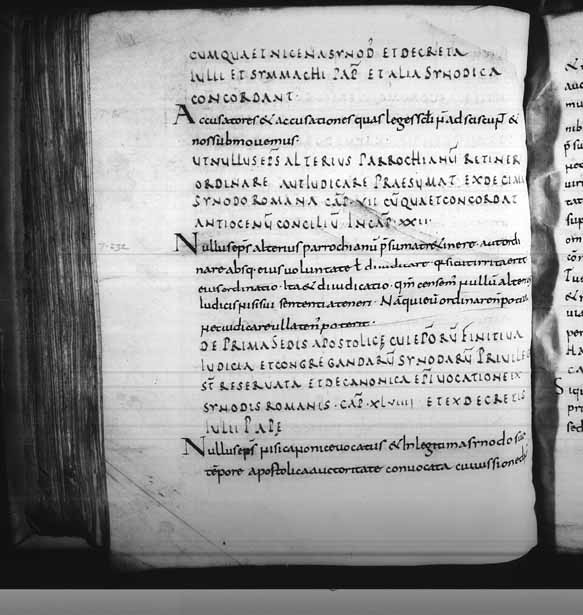 CUMQUAETNICENASYNOD̄ ETDECRETA
IULII ET SYMMACHI PAP̄ ET ALIA SYNODICA
CONCORDANT·
Accusatores & accusationes quas leges adsciscunt &
nossubmovemus·
UTNULLUSEP̄S ALTERIUS PARROCHIANŪ RETINERE
ORDINARE AUTIUDICARE PRAESUMAT EXDECIMA
SYNODO ROMANA CAP̄ VII CŪQUAETCONCORDAT
ANTIOCENŪ CONCILIŪ INCAP̄ XXII
Nullusep̄s alterius parrochianū p̄sumat retinere autordi
nare absq· eiusvoluntate ł diiudicare quia irrita erit
eiusordinatio· Ita & diiudicatio· qm̄ censem̄ nullū alterius
Iudicis nisi sui sententia teneri· Nā qui eū ordinare n̄ potuit
neciudicare ullaten̄ poterit·
DE PRIMASEDIS APOSTOLICĘ CUI EP̄ORŪ FINITIUA
IUDICIA ETCONGREGANDARŪ SYNODARŪ PRIVILEG
SŦ RESERVATA ETDECANONICA EP̄I VOCATIONE IX
SYNODIS ROMANIS· CAP̄ XLVIIII ETEXDECRETIS
IULII PAPE
Nullusep̄s nisi canonice vocatus & in legitima synodo suo
tēpore apostolica auctoritate convocata cui iussione di
7·232